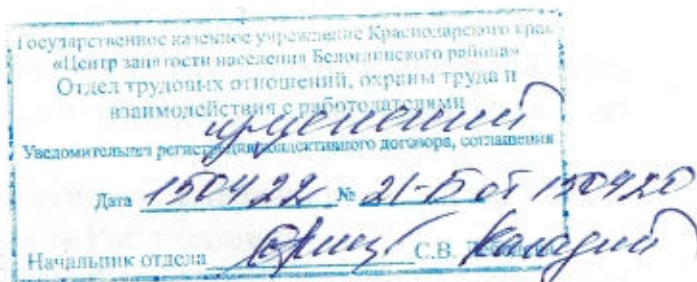 Государственное казенное учреждение Краснодарского края
«Центр занятости населения Белоглинского района»
Отдел трудовых отношений, охраны труда и
взаимодействия с работодателями
изменений
Уведомительная регистрация коллективного договора, соглашения
Дата 150422 № 21-Б от 150420
Начальник отдела С.В.